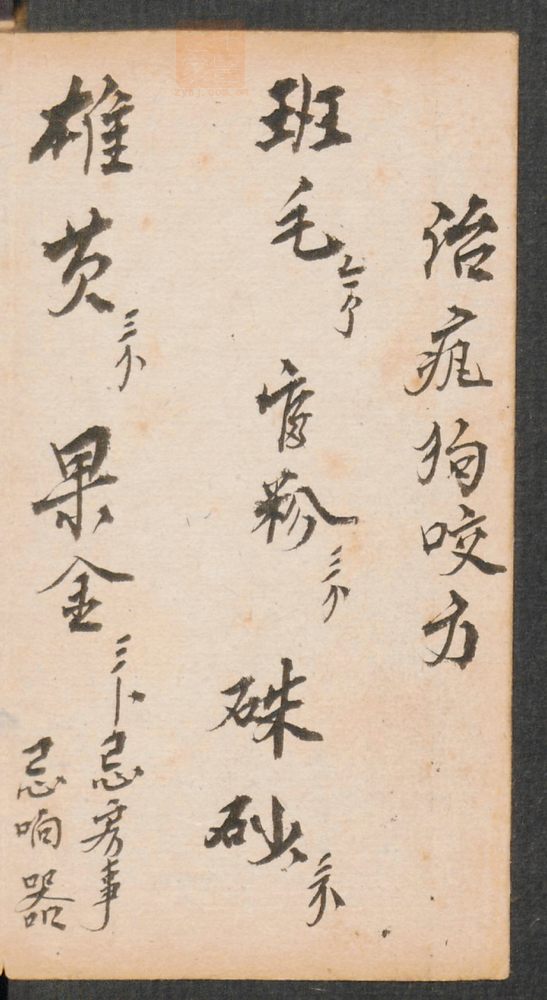 治疯狗咬方
班毛 官粉三分 硃砂三分
雄黄三分 果金三
忌房事
忌响器